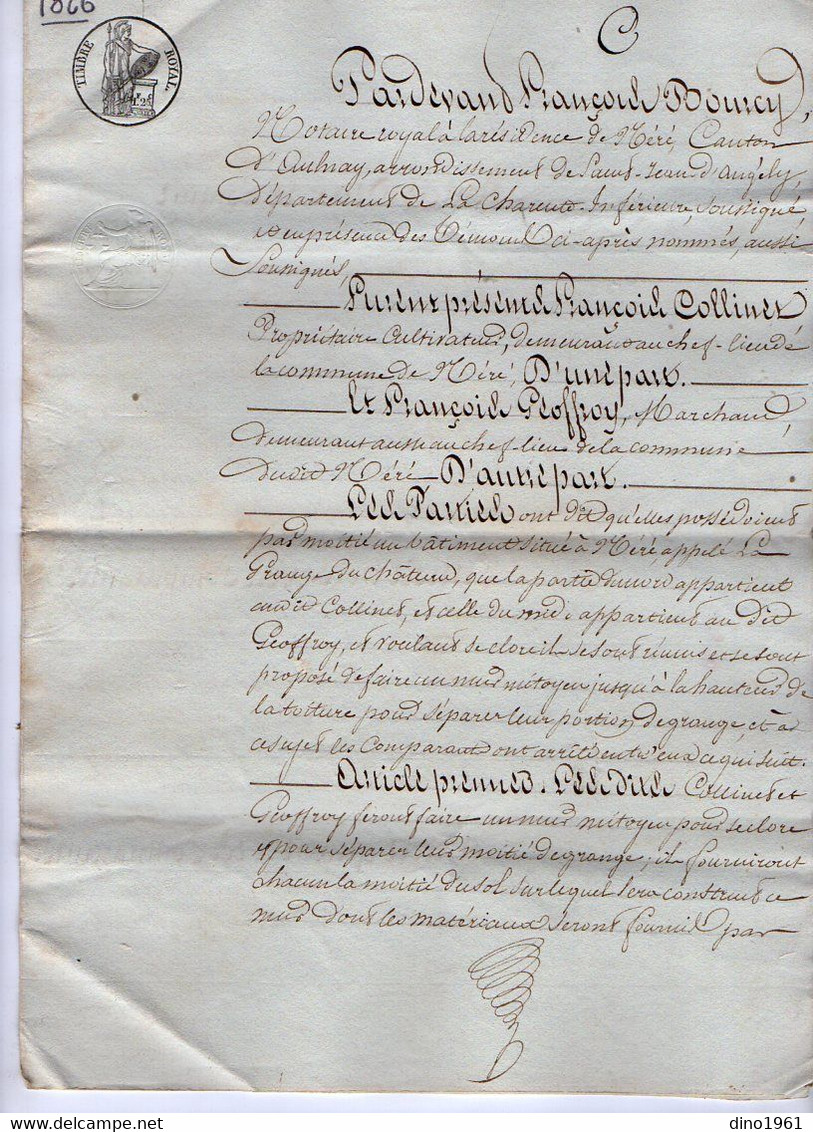 1826
TIMBRE ROYAL
C
Pardevant François Bourcy,
Notaire royal à la résidence de Néré, Canton
d'Aulnay, arrondissement de Saint-Jean d'angely,
département de La Charente-Inférieure, soussigné,
et en présence des témoins ci-après nommés, aussi
soussignés,
Furent présents François Collinet
Propriétaire Cultivateur, demeurant au chef-lieu de
la commune de Néré, D'une part.
Et François Geoffroy, Marchand,
demeurant aussi au chef-lieu de la commune
dudit Néré D'autre part.
Les Parties ont dit qu'elles possédoient
par moitié un bâtiment situé à Néré, appelé La
Grange du château, que la partie du nord appartient
audit Collinet, et celle du midi appartient au dit
Geoffroy, et voulant se clore ils se sont réunis et se sont
proposé de faire un mur mitoyen jusqu'à la hauteur de
la toiture pour séparer leur portion de grange, et à
ce sujet les Comparant ont arrêté entr'eux ce qui suit.
Article premier. Les dits Collinet et
Geoffroy feront faire un mur mitoyen pour se clore
et pour séparer leur moitié de grange; ils fourniront
chacun la moitié du sol sur lequel sera construit ce
mur dont les matériaux seront fournis par
delcampe.net
dino1961